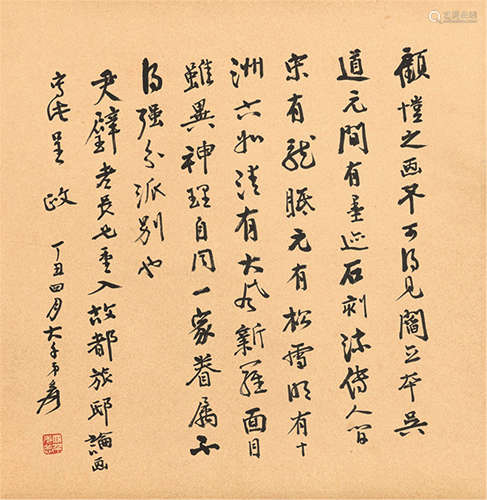 顧愷之画不可得见閻立本吴
道元間有墨迹石刻流傳人间
宋有龍眠元有松雪明有十
洲六如清有大风新羅面目
雖異神理自同一家眷属不
得强分派别也
尹璧老長兄重入故都旅邸論画
写此呈政
丁丑四月大千弟爰